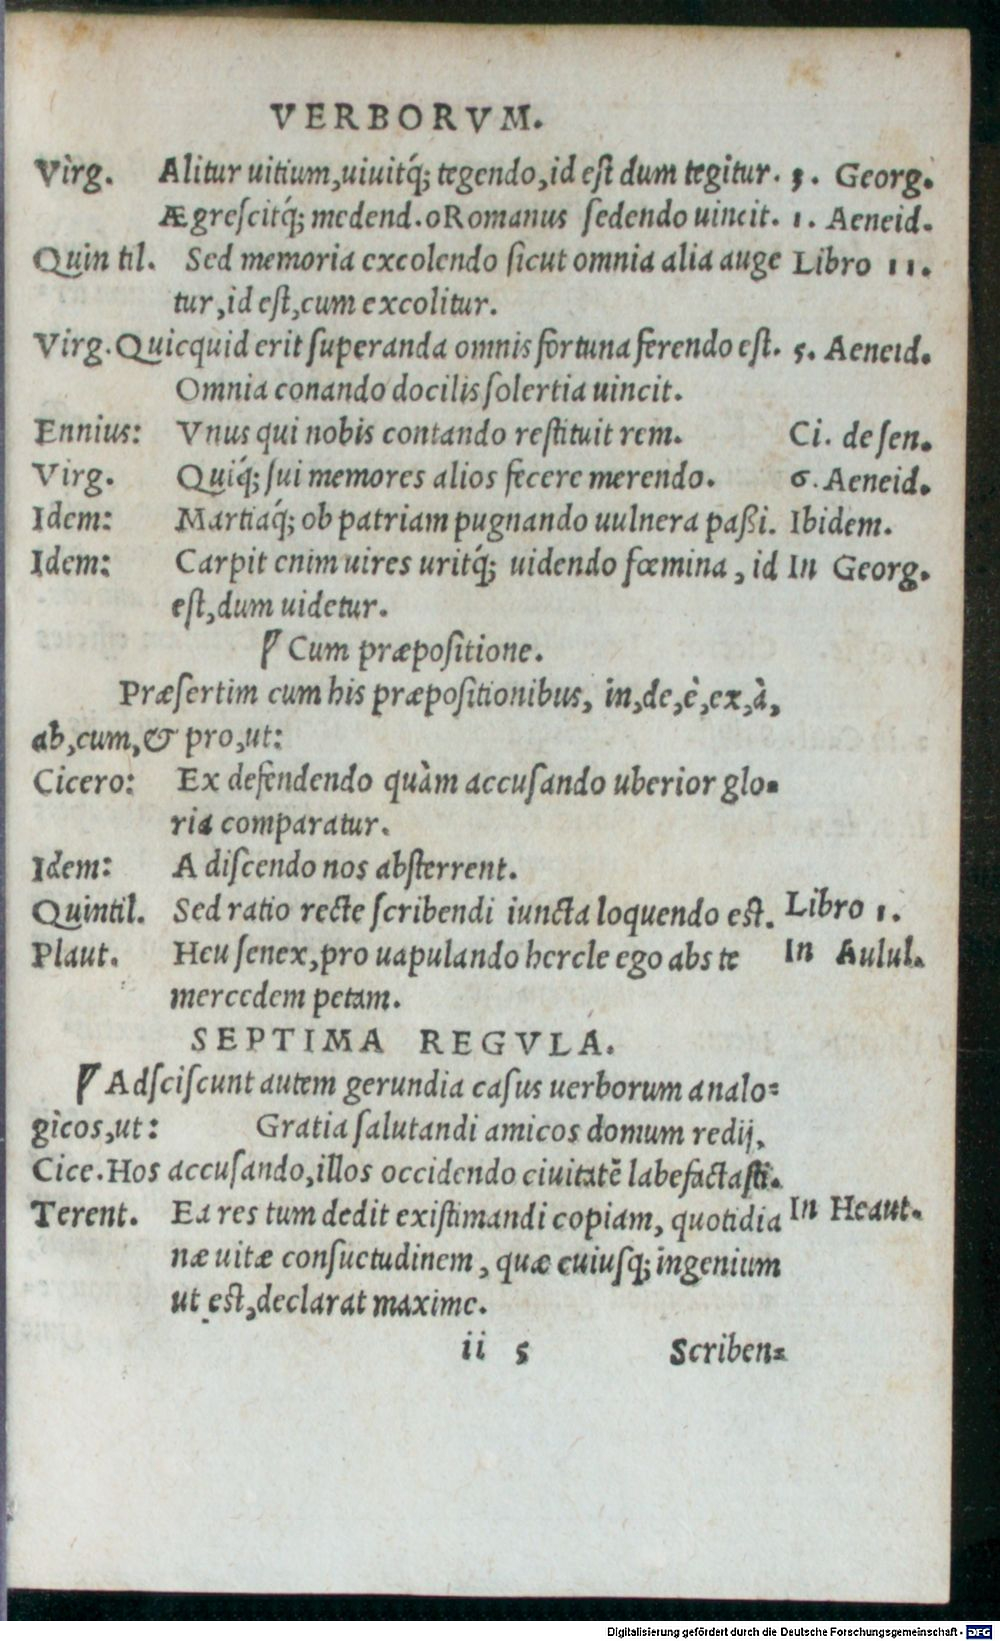 VERBORVM.
Virg. Alitur uitium, uiuitq́; tegendo, id est dum tegitur. 3. Georg.
Ægrescitq́; medend.oRomanus sedendo uincit. 1. Aeneid.
Quintil. Sed memoria excolendo sicut omnia alia auge Libro 11.
tur, id est, cum excolitur.
Virg. Quicquid erit superanda omnis fortuna ferendo est. 5. Aeneid.
Omnia conando docilis solertia uincit.
Ennius: Vnus qui nobis contando restituit rem. Ci. de sen.
Virg. Quiq́; sui memores alios fecere merendo. 6. Aeneid.
Idem: Martiaq́; ob patriam pugnando uulnera paßi. Ibidem.
Idem: Carpit enim uires uritq́; uidendo fœmina, id In Georg.
est, dum uidetur.
¶ Cum præpositione.
Præsertim cum his præpositionibus, in, de, è, ex, à,
ab, cum, & pro, ut:
Cicero: Ex defendendo quàm accusando uberior glo=
ria comparatur.
Idem: A discendo nos absterrent.
Quintil. Sed ratio recte scribendi iuncta loquendo est. Libro 1.
Plaut. Heu senex, pro uapulando hercle ego abs te In Aulul.
mercedem petam.
SEPTIMA REGVLA.
¶ Adsciscunt autem gerundia casus uerborum analo=
gicos, ut: Gratia salutandi amicos domum redij.
Cice. Hos accusando, illos occidendo ciuitatẽ labefactasti.
Terent. Ea res tum dedit existimandi copiam, quotidia In Heaut.
næ uitæ consuetudinem, quæ cuiusq; ingenium
ut est, declarat maxime.
ii 5 Scriben=
Digitalisierung gefördert durch die Deutsche Forschungsgemeinschaft - DFG